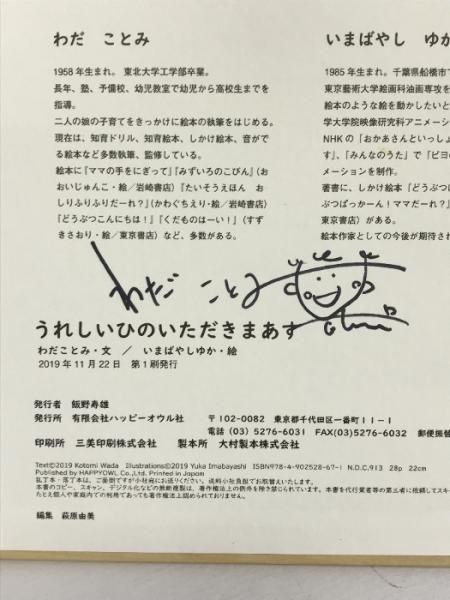 わだ ことみ
1958年生まれ。東北大学工学部卒業。
長年、塾、予備校、幼児教室で幼児から高校生までを
指導。
二人の娘の子育てをきっかけに絵本の執筆をはじめる。
現在は、知育ドリル、知育絵本、しかけ絵本、音がで
る絵本など多数執筆、監修している。
絵本に『ママの手をにぎって』『みずいろのこびん』(お
おいじゅんこ・絵/岩崎書店)『たいそうえほん お
しりふりふりだーれ?』(かわぐちえり・絵/岩崎書店)
『どうぶつこんにちは!』『くだものはーい!』(すず
きさおり・絵/東京書店)など、多数がある。
いまばやし ゆか
1985年生まれ。千葉県船橋市で
東京藝術大学絵画科油画専攻を
絵本のような絵を動かしたいと
学大学院映像研究科アニメーショ
NHKの「おかあさんといっしょ
す」、「みんなのうた」で「ピヨの
メーションを制作。
著書に、しかけ絵本『どうぶつ
ぶつぱっかーん!ママだーれ?』
東京書店)がある。
絵本作家としての今後が期待され
わだ ことみ
うれしいひのいただきまあす
わだことみ・文 / いまばやしゆか・絵
2019年11月22日 第1刷発行
発行者 飯野寿雄
発行所 有限会社ハッピーオウル社 〒102-0082 東京都千代田区一番町11-1
電話(03)5276-6031 FAX(03)5276-6032 郵便振替
印刷所 三美印刷株式会社 製本所 大村製本株式会社
Text©2019 Kotomi Wada Illustrations©2019 Yuka Imabayashi ISBN978-4-902528-67-1 N.D.C.913 28p 22cm
Published by HAPPYOWL Co.,Ltd. Printed in Japan
乱丁本・落丁本は、ご面倒ですが小社宛にお送りください。送料小社負担でお取替えいたします。
本書のコピー、スキャン、デジタル化などの無断複製は、著作権法上の例外を除き禁じられています。本書を代行業者等の第三者に依頼してスキ
たとえ個人や家庭内での利用であっても著作権法上認められておりません。
編集 萩原由美